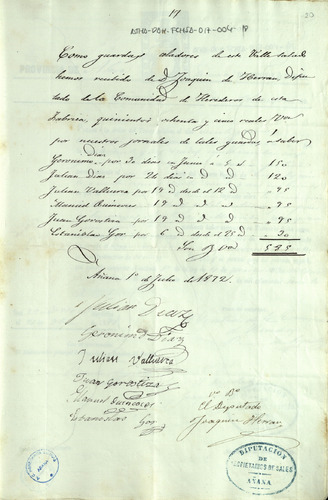 17
20
ATHA-DAH-FCHSA-017-004-18
Como guardas celadores de este Valle salado
hemos recibido de D. Joaquin de Herran Dipu
tado de la Comunidad de Herederos de esta
fabrica, quinientos ochenta y cinco reales Von
por nuestros jornales de tales guardas á saber
Geronimo Diaz por 30 dias en Junio á 5 rs 150
Julian Diaz por 24 dias id id 120
Julian Valluerca por 19 id desde el 12 id 95
Manuel Quincoces 19 id id id 95
Juan Gorostiza por 19 id id id 95
Estanislao Goz por 6 id desde el 25 id 30
Son rs von 585
Añana 1º de Julio de 1872
Julian Diaz
Geronimo Diaz
Julian Valluerca
Juan Gorostiza
Manuel Quincoces
Estanislao Goz
Vº Bº
El Diputado
Joaquin Herran
DIPUTACION DE
PROPIETARIOS DE SALES
AÑANA